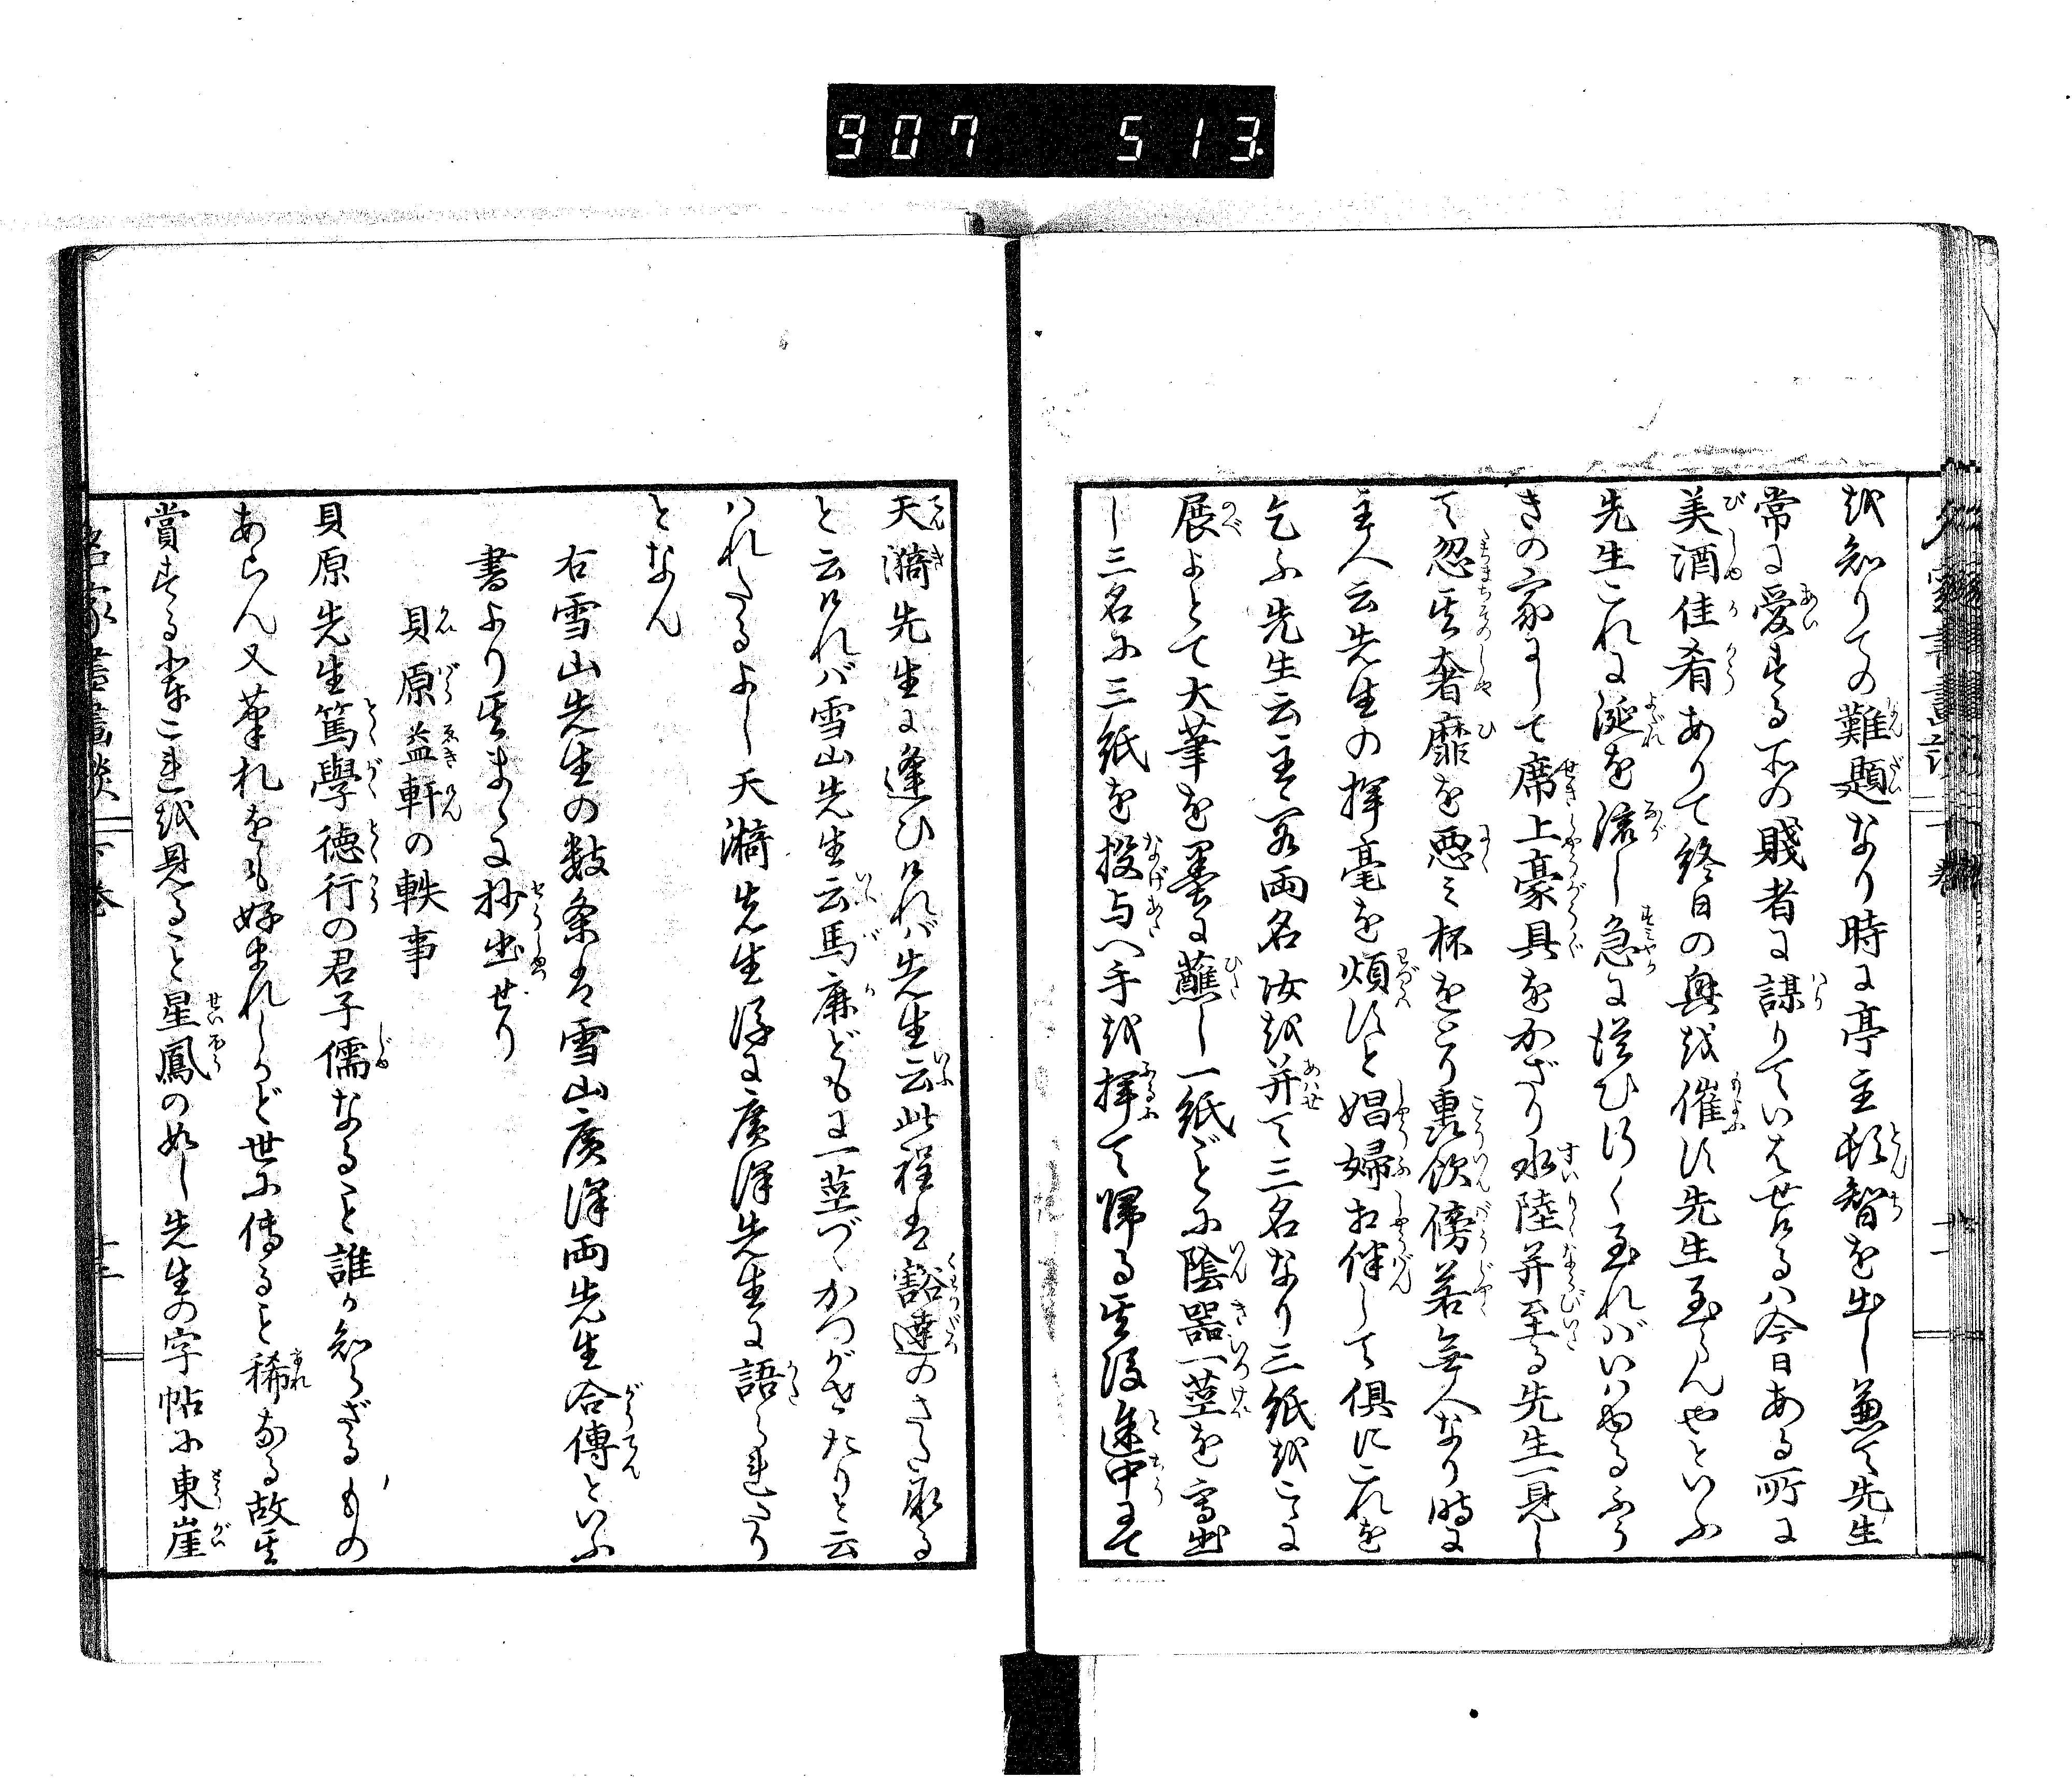 907 513
を知りての難題なり時に亭主頓智を出し兼て先生
常に愛する所の賤者に謀りていはせけるハ今日ある所に
美酒佳肴ありて終日の興を催す先生至らんやといふ
先生これに涎を流し急に従ひ行く至れバいハゆるふう
きの家にして席上豪具をかざり水陸并至る先生一見し
て忽其奢靡を悪ミ杯をとり轟飲傍若無人なり時に
主人云先生の揮毫を煩すと娼婦相伴して倶にこれを
乞ふ先生云主客両名汝を并て三名なり三紙をこゝに
展よとて大筆を墨に蘸し一紙ごとに陰器一茎を写出
し三名に三紙を投与へ手を揮て帰る其後途中にて
天漪先生に逢ひけれバ先生云此程は豁達のさた承る
と云けれバ雪山先生云馬廉どもに一茎づゝかつがせたりと云
ハれたるよし天漪先生後に廣澤先生に語られたり
となん
右雪山先生の数条は雪山廣澤両先生合傳といふ
書より其まゝに抄出せり
貝原益軒の軼事
貝原先生篤學徳行の君子儒なること誰か知らざるもの
あらん又筆札をも好まれしかど世に傳ること稀なる故其
賞する輩これを見ること星鳳の如し先生の字帖に東崖
名家書畫談 下巻